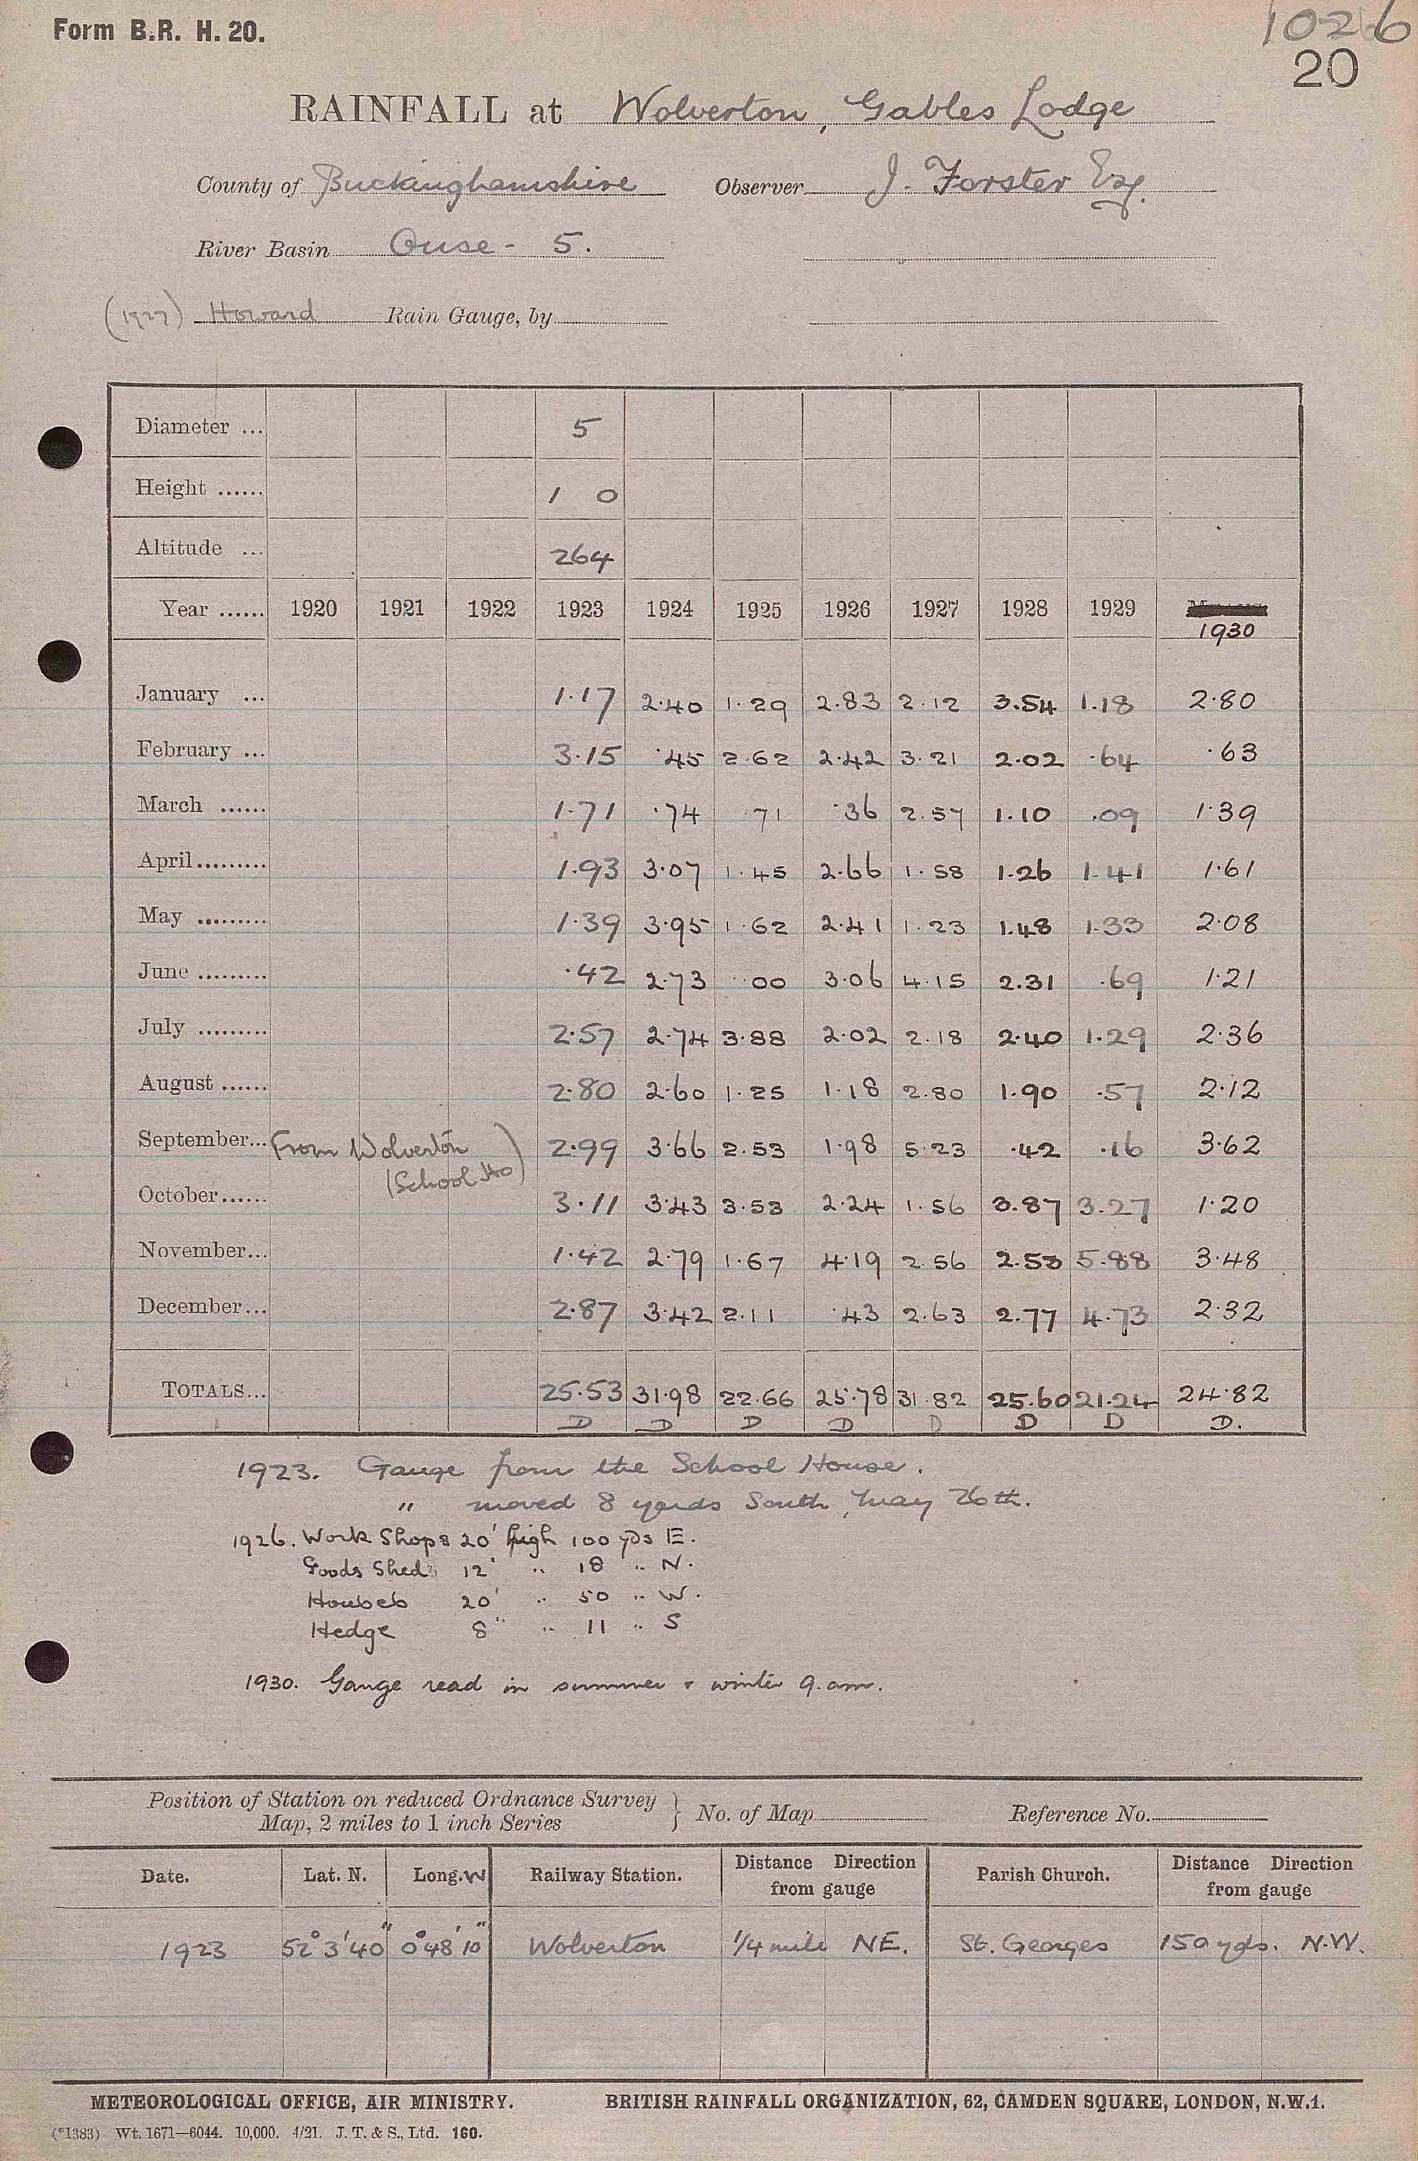 Form B.R. H. 20.
1026
20
RAINFALL at Wolverton, Gables Lodge
County of Buckinghamshire Observer J. Forster Esq.
River Basin Ouse - 5.
(1927) Howard Rain Gauge, by
Diameter ... 5
Height ...... 1 0
Altitude ... 264
Year ...... 1920 1921 1922 1923 1924 1925 1926 1927 1928 1929
1930
January ... 1.17 2.40 1.29 2.83 2.12 3.54 1.18 2.80
February ... 3.15 .45 2.62 2.42 3.21 2.02 .64 .63
March ...... 1.71 .74 .71 .36 2.57 1.10 .09 1.39
April......... 1.93 3.07 1.45 2.66 1.58 1.26 1.41 1.61
May ......... 1.39 3.95 1.62 2.41 1.23 1.48 1.33 2.08
June ......... .42 2.73 .00 3.06 4.15 2.31 .69 1.21
July ......... 2.57 2.74 3.88 2.02 2.18 2.40 1.29 2.36
August ...... 2.80 2.60 1.25 1.18 2.80 1.90 .57 2.12
September... From Wolverton 2.99 3.66 2.53 1.98 5.23 .42 .16 3.62
(School Ho)
October...... 3.11 3.43 3.53 2.24 1.56 3.87 3.27 1.20
November... 1.42 2.79 1.67 4.19 2.56 2.53 5.88 3.48
December... 2.87 3.42 2.11 .43 2.63 2.77 4.73 2.32
TOTALS... 25.53 31.98 22.66 25.78 31.82 25.60 21.24 24.82
D D D D D D D D.
1923. Gauge from the School House.
" moved 8 yards South, May 26th.
1926. Work Shops 20' high 100 yds E.
Goods Shed 12' " 18 " N.
Houses 20' " 50 " W.
Hedge 8" " 11 " S
1930. Gauge read in summer & winter 9. am.
Position of Station on reduced Ordnance Survey
Map, 2 miles to 1 inch Series } No. of Map Reference No.
Date. Lat. N. Long. W Railway Station. Distance Direction from gauge Parish Church. Distance Direction from gauge
1923 52° 3' 40" 0° 48' 10" Wolverton 1/4 mile NE. St. Georges 150 yds. N.W.
METEOROLOGICAL OFFICE, AIR MINISTRY. BRITISH RAINFALL ORGANIZATION, 62, CAMDEN SQUARE, LONDON, N.W.1.
(*1383) Wt. 1671—6044. 10,000. 4/21. J. T. & S., Ltd. 160.